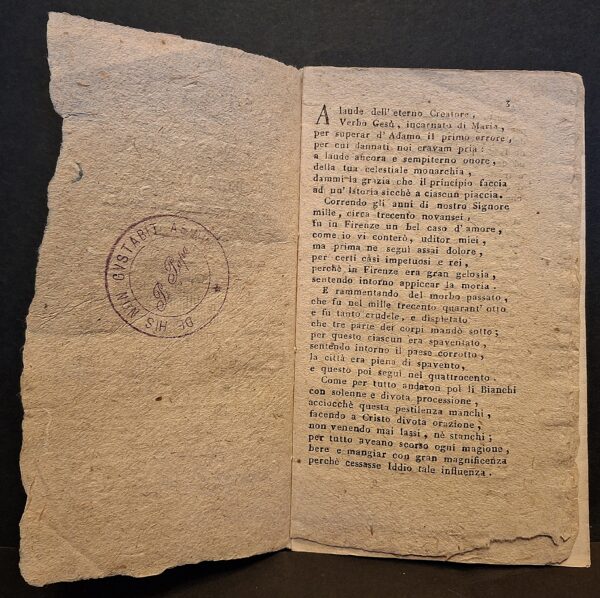 DE HIS NON GVSTABIT
B. Pepa
3
A laude dell'eterno Creatore,
Verbo Gesù, incarnato di Maria,
per superar d'Adamo il primo errore,
per cui dannati noi eravam pria:
a laude ancora e sempiterno onore,
della tua celestiale monarchia,
dammi la grazia che il principio faccia
ad un'Istoria sicchè a ciascun piaccia.
Correndo gli anni di nostro Signore
mille, circa trecento novansei,
fu in Firenze un bel caso d'amore,
come io vi conterò, uditor miei,
ma prima ne seguì assai dolore,
per certi càsi impetuosi e rei,
perchè in Firenze era gran gelosia,
sentendo intorno appiccar la moria.
E rammentando del morbo passato,
che fu nel mille trecento quarant'otto
e fu tanto crudele, e dispietato
che tre parte dei corpi mandò sotto;
per questo ciascun era spaventato,
sentendo intorno il paese corrotto,
la città era piena di spavento,
e questo poi seguì nel quattrocento.
Come per tutto andaron poi li Bianchi
con solenne e divota processione,
acciocchè questa pestilenza manchi,
facendo a Cristo divota orazione,
non venendo mai lassi, nè stanchi;
per tutto aveano scorso ogni magione,
bere e mangiar con gran magnificenza
perchè cessasse Iddio tale influenza.